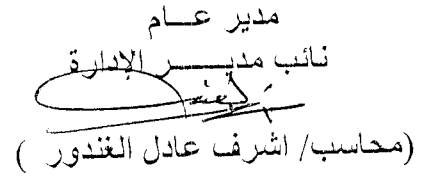 مدير عــام
نائب مديــــر الإدارة
(محاسب/ اشرف عادل الغندور )